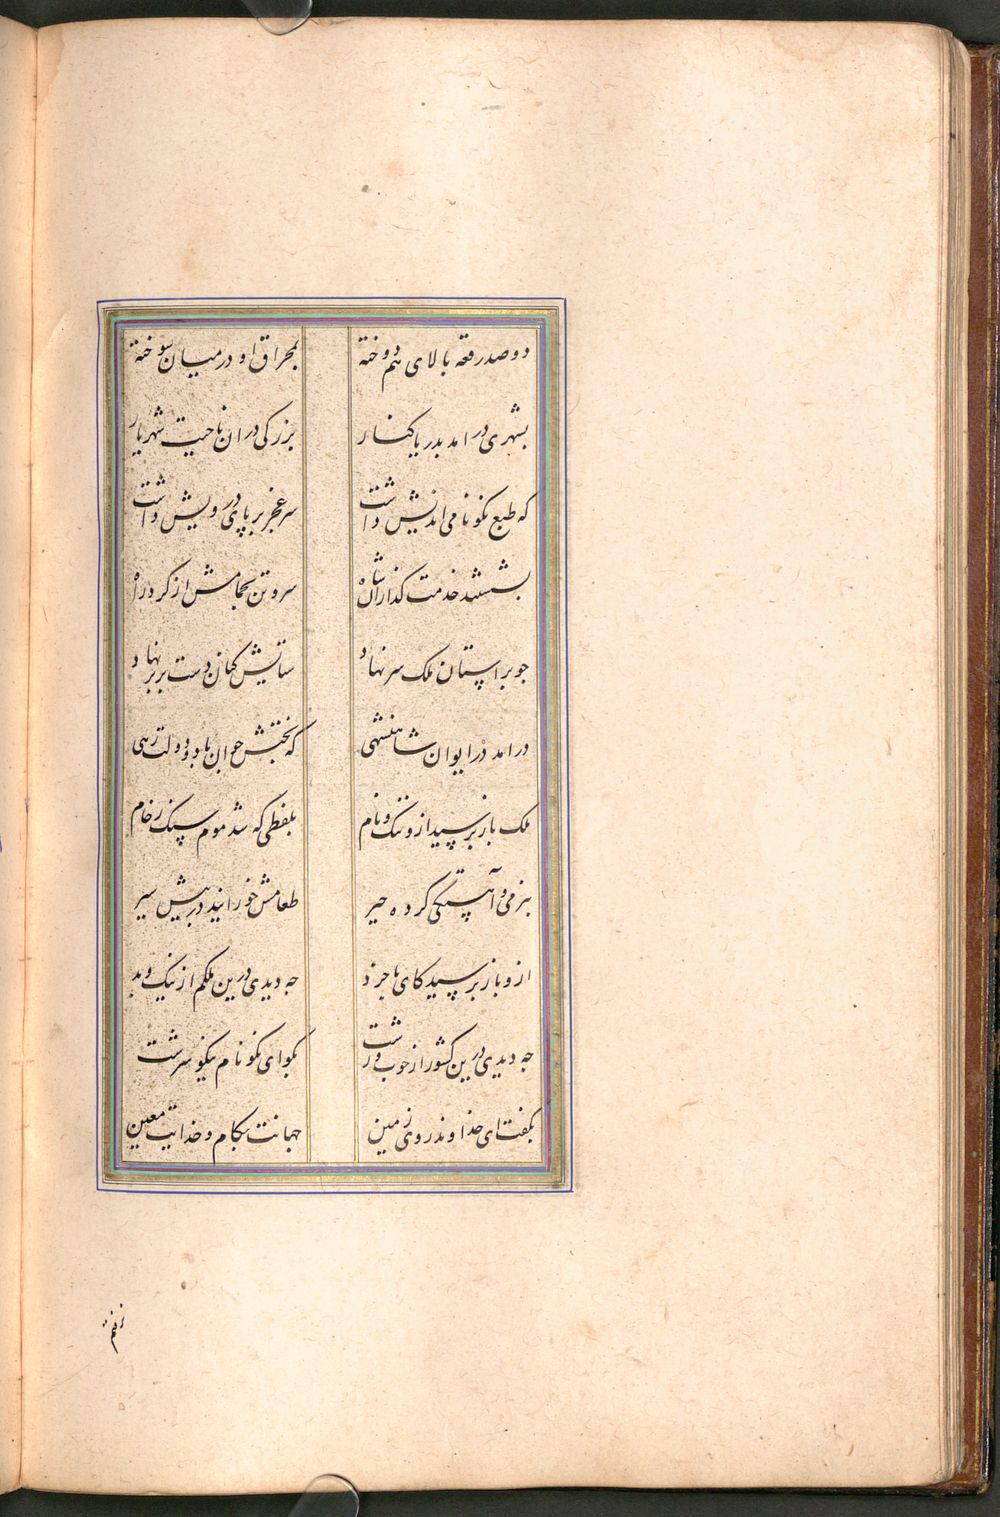 دو صد رقعه بالای هم دوخته بمحراق او در میان سوخته
بشهری در امد بدریا کنار بزرکی در ان ناحیت شهریار
که طبع نکونامی اندیش داشت سر عجز بر پای درویش داشت
بشستند خدمت کذاران شاه سر و تن بحمامش از کرد راه
جو بر استان ملک سر نهاد ستایش کنان دست بر بر نهاد
درامد در ایوان شاهنشهی که بختش جوان باد و دولت رهی
ملک باز پرسید از و ننک و نام بلفظی که شد موم سنک رخام
بنرمی و آهستکی کرده خیر طعامش خورانید در پیش سیر
ازو باز پرسید کای با خرد جه دیدی درین ملکم از نیک و بد
جه دیدی درین کشور از خوب و زشت بکو ای نکو نام نیکو سرشت
بکفت ای خداوند روی زمین جهانت بکام و خدایت معین
نرفتم